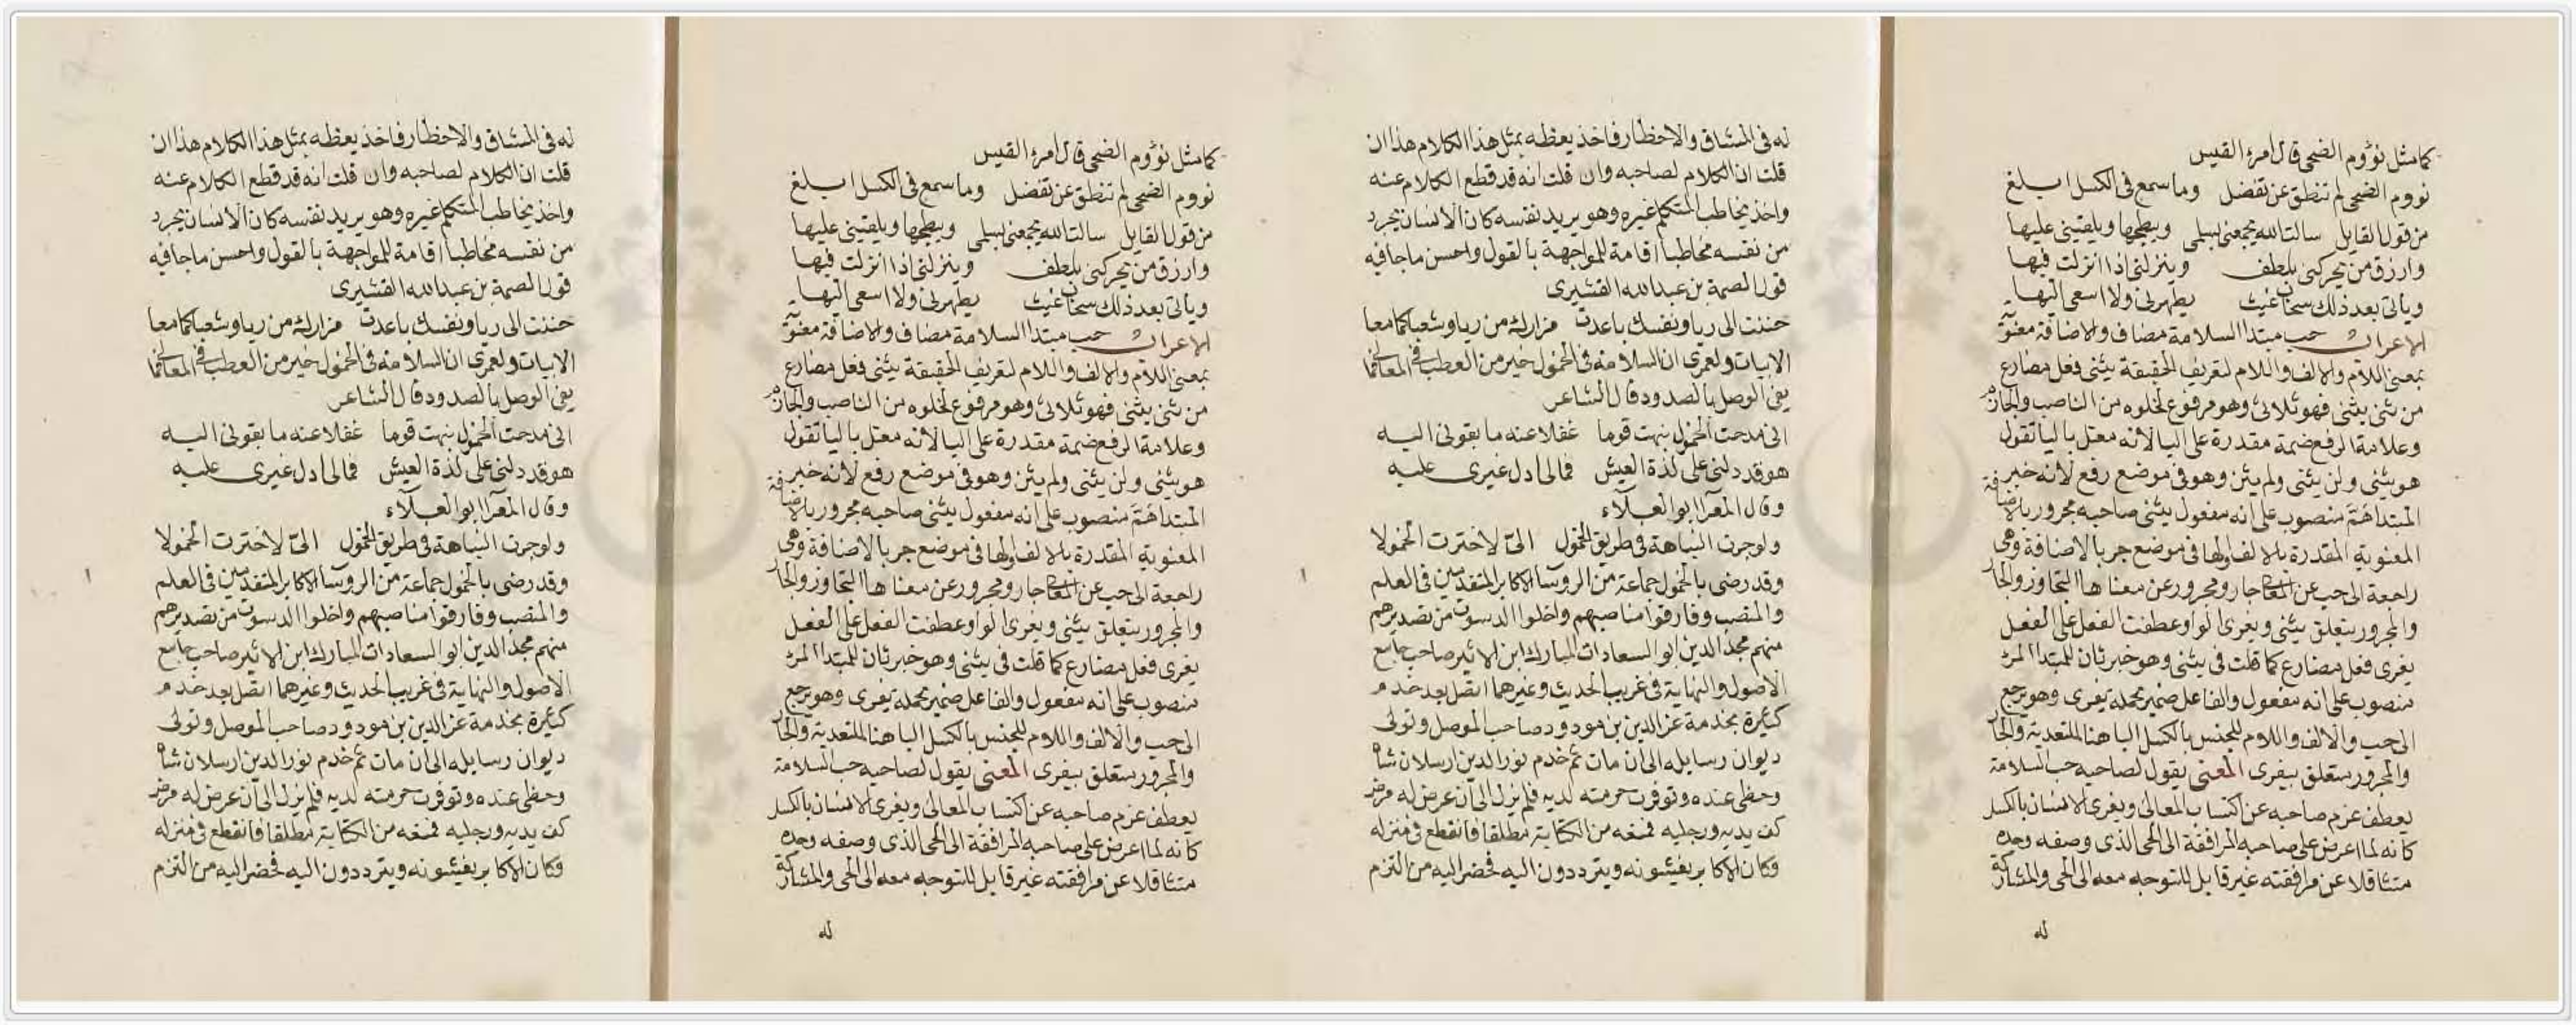 كما مثل نؤوم الضحى قال امرء القيس
نووم الضحى لم تنطق عن تفضل وما سمع في الكسل ابلغ
من قول القايل سالت الله يجمعني بليلى ويبطحها ويلقيني عليها
وارزق من يحركني بلطف وينزلني اذا انزلت فيها
وياتي بعد ذلك سحاب غيث يطهرني ولا اسعى اليها
الاعراب حب مبتدا السلامة مضاف والاضافة معنوية
بمعنى اللام والالف واللام لتعريف الحقيقة يثنى فعل مضارع
من ثنى يثنى فهو ثلاثى وهو مرفوع لخلوه من الناصب والجازم
وعلامة الرفع ضمة مقدرة على اليا لانه معتل باليا تقول
هو يثنى ولن يثنى ولم يثن وهو في موضع رفع لانه خبر
المبتدا هم منصوب على انه مفعول يثنى صاحبه مجرور بالاضافة
المعنوية المقدرة باللام والها في موضع جر بالاضافة وهى
راجعة الى حب عن المعالى جار ومجرور عن معناها التجاوز والجار
والمجرور يتعلق بيثنى ويغرى الواو عطفت الفعل على الفعل
يغرى فعل مضارع كما قلت في يثنى وهو خبر ثان للمبتدا المرء
منصوب على انه مفعول والفاعل ضمير محله يغرى وهو يرجع
الى حب والالف واللام للجنس بالكسل البا هنا للتعدية والجار
والمجرور يتعلق بيغرى المعنى يقول لصاحبه حب السلامة
يعطف عزم صاحبه عن اكتساب المعالى ويغرى الانسان بالكسل
كانه لما اعرض على صاحبه المرافقة الى الحى الذى وصفه وجده
متثاقلا عن مرافقته غير قابل للتوجه معه الى الحى والمشاركة
له
له في المشاق والاخطار فاخذ يعظه بمثل هذا الكلام هذا ان
قلت ان الكلام لصاحبه وان قلت انه قد قطع الكلام عنه
واخذ يخاطب المتكلم غيره وهو يريد نفسه كان الانسان يجرد
من نفسه مخاطبا اقامة للمواجهة بالقول واحسن ما جا فيه
قول الصمة بن عبد الله القشيرى
حننت الى ريا ونفسك باعدت مزارك من ريا وشعبا كما معا
الابيات ولعمرى ان السلامة في الخمول خير من العطب في المعالى
يفى الوصل بالصدود قال الشاعر
انى مدحت الخمول نبهت قوما غفلا عنه ما بقونى اليه
هو قد دلنى على لذة العيش فما لى ادل غيرى عليه
وقال المعرا ابو العلآء
ولو جرت النباهة في طريق الخمول الىّ لاخترت الخمولا
وقد رضى بالخمول جماعة من الروسا الاكابر المتقدمين في العلم
والمنصب وفارقوا مناصبهم واخلوا الدسوت من تصديرهم
منهم مجد الدين ابو السعادات المبارك ابن الاثير صاحب جامع
الاصول والنهاية في غريب الحديث وغيرهما اتصل بعد خدم
كثيرة بخدمة عز الدين بن مودود صاحب الموصل وتولى
ديوان رسايله الى ان مات ثم خدم نور الدين ارسلان شاه
وحظى عنده وتوفرت حرمته لديه فلم يزل الى ان عرض له مرض
كف يديه ورجليه فمنعه من الكتابة مطلقا فانقطع في منزله
وكان الاكابر يغيثونه ويترددون اليه فحضر اليه من التزم
كما مثل نؤوم الضحى قال امرء القيس
نووم الضحى لم تنطق عن تفضل وما سمع في الكسل ابلغ
من قول القايل سالت الله يجمعني بليلى ويبطحها ويلقيني عليها
وارزق من يحركني بلطف وينزلني اذا انزلت فيها
وياتي بعد ذلك سحاب غيث يطهرني ولا اسعى اليها
الاعراب حب مبتدا السلامة مضاف والاضافة معنوية
بمعنى اللام والالف واللام لتعريف الحقيقة يثنى فعل مضارع
من ثنى يثنى فهو ثلاثى وهو مرفوع لخلوه من الناصب والجازم
وعلامة الرفع ضمة مقدرة على اليا لانه معتل باليا تقول
هو يثنى ولن يثنى ولم يثن وهو في موضع رفع لانه خبر
المبتدا هم منصوب على انه مفعول يثنى صاحبه مجرور بالاضافة
المعنوية المقدرة باللام والها في موضع جر بالاضافة وهى
راجعة الى حب عن المعالى جار ومجرور عن معناها التجاوز والجار
والمجرور يتعلق بيثنى ويغرى الواو عطفت الفعل على الفعل
يغرى فعل مضارع كما قلت في يثنى وهو خبر ثان للمبتدا المرء
منصوب على انه مفعول والفاعل ضمير محله يغرى وهو يرجع
الى حب والالف واللام للجنس بالكسل البا هنا للتعدية والجار
والمجرور يتعلق بيغرى المعنى يقول لصاحبه حب السلامة
يعطف عزم صاحبه عن اكتساب المعالى ويغرى الانسان بالكسل
كانه لما اعرض على صاحبه المرافقة الى الحى الذى وصفه وجده
متثاقلا عن مرافقته غير قابل للتوجه معه الى الحى والمشاركة
له
له في المشاق والاخطار فاخذ يعظه بمثل هذا الكلام هذا ان
قلت ان الكلام لصاحبه وان قلت انه قد قطع الكلام عنه
واخذ يخاطب المتكلم غيره وهو يريد نفسه كان الانسان يجرد
من نفسه مخاطبا اقامة للمواجهة بالقول واحسن ما جا فيه
قول الصمة بن عبد الله القشيرى
حننت الى ريا ونفسك باعدت مزارك من ريا وشعبا كما معا
الابيات ولعمرى ان السلامة في الخمول خير من العطب في المعالى
يفى الوصل بالصدود قال الشاعر
انى مدحت الخمول نبهت قوما غفلا عنه ما بقونى اليه
هو قد دلنى على لذة العيش فما لى ادل غيرى عليه
وقال المعرا ابو العلآء
ولو جرت النباهة في طريق الخمول الىّ لاخترت الخمولا
وقد رضى بالخمول جماعة من الروسا الاكابر المتقدمين في العلم
والمنصب وفارقوا مناصبهم واخلوا الدسوت من تصديرهم
منهم مجد الدين ابو السعادات المبارك ابن الاثير صاحب جامع
الاصول والنهاية في غريب الحديث وغيرهما اتصل بعد خدم
كثيرة بخدمة عز الدين بن مودود صاحب الموصل وتولى
ديوان رسايله الى ان مات ثم خدم نور الدين ارسلان شاه
وحظى عنده وتوفرت حرمته لديه فلم يزل الى ان عرض له مرض
كف يديه ورجليه فمنعه من الكتابة مطلقا فانقطع في منزله
وكان الاكابر يغيثونه ويترددون اليه فحضر اليه من التزم